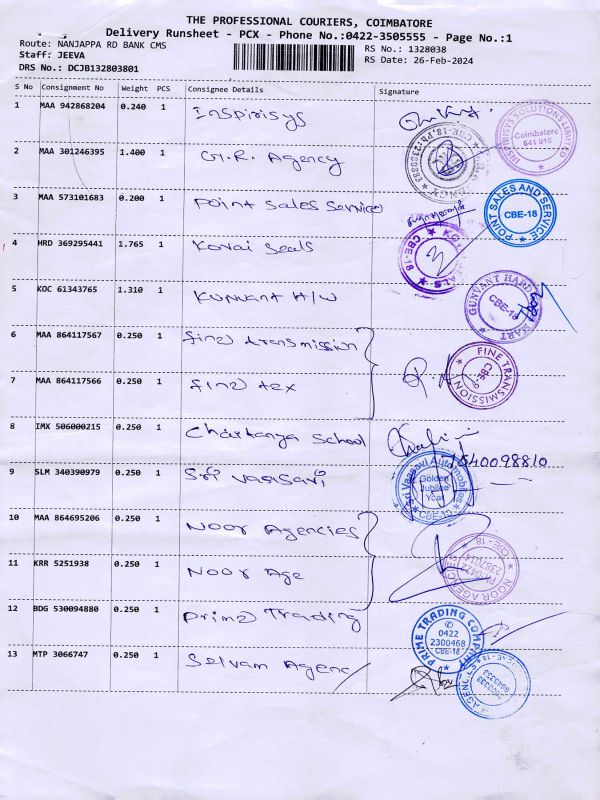 THE PROFESSIONAL COURIERS, COIMBATORE
Delivery Runsheet - PCX - Phone No.:0422-3505555 - Page No.:1
Route: NANJAPPA RD BANK CMS
RS No.: 1328038
Staff: JEEVA
RS Date: 26-Feb-2024
DRS No.: DCJB132803801
S No Consignment No Weight PCS Consignee Details Signature
1 MAA 942868204 0.240 1 Inspirisys
INSPIRISYS SOLUTIONS LIMITED Coimbatore 641 018
2 MAA 301246395 1.400 1 G.R. Agency
3 MAA 573101683 0.200 1 Point Sales Service
POINT SALES AND SERVICE CBE-18
4 HRD 369295441 1.765 1 Kovai Seals
CBE-18
5 KOC 61343765 1.310 1 H/W
GUNVANT MART CBE-18
6 MAA 864117567 0.250 1 fine transmission
7 MAA 864117566 0.250 1 fine tex
FINE TRANSMISSION
8 IMX 506000215 0.250 1 School
9 SLM 340390979 0.250 1 Sri vaasavi
Sri Vaasavi Automobiles Golden Jubilee Year
10 MAA 864695206 0.250 1 Noor Agencies
11 KRR 5251938 0.250 1 Noor Age
CBE-18
12 BDG 530094880 0.250 1 Prime Trading
PRIME TRADING COMPANY 0422 2300468 CBE-18
13 MTP 3066747 0.250 1 Selvam Agenc